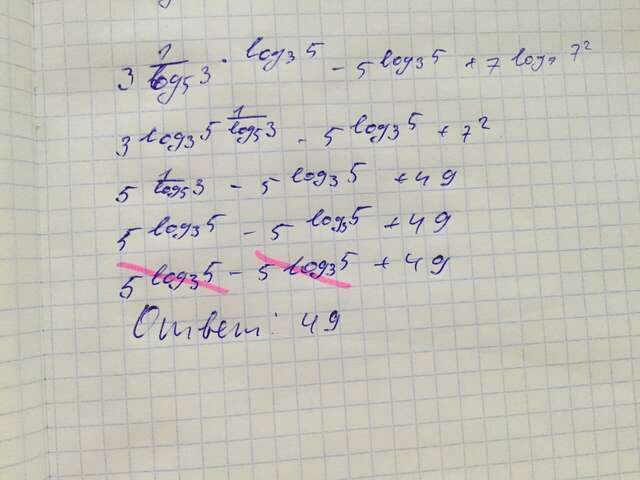 3^{\frac{1}{\log_5 3} \cdot \log_3 5} - 5^{\log_3 5} + 7^{\log_7 7^2}
3^{\log_3 5^{\frac{1}{\log_5 3}}} - 5^{\log_3 5} + 7^2
5^{\frac{1}{\log_5 3}} - 5^{\log_3 5} + 49
5^{\log_3 5} - 5^{\log_3 5} + 49
5^{\log_3 5} - 5^{\log_3 5} + 49
Ответ: 49